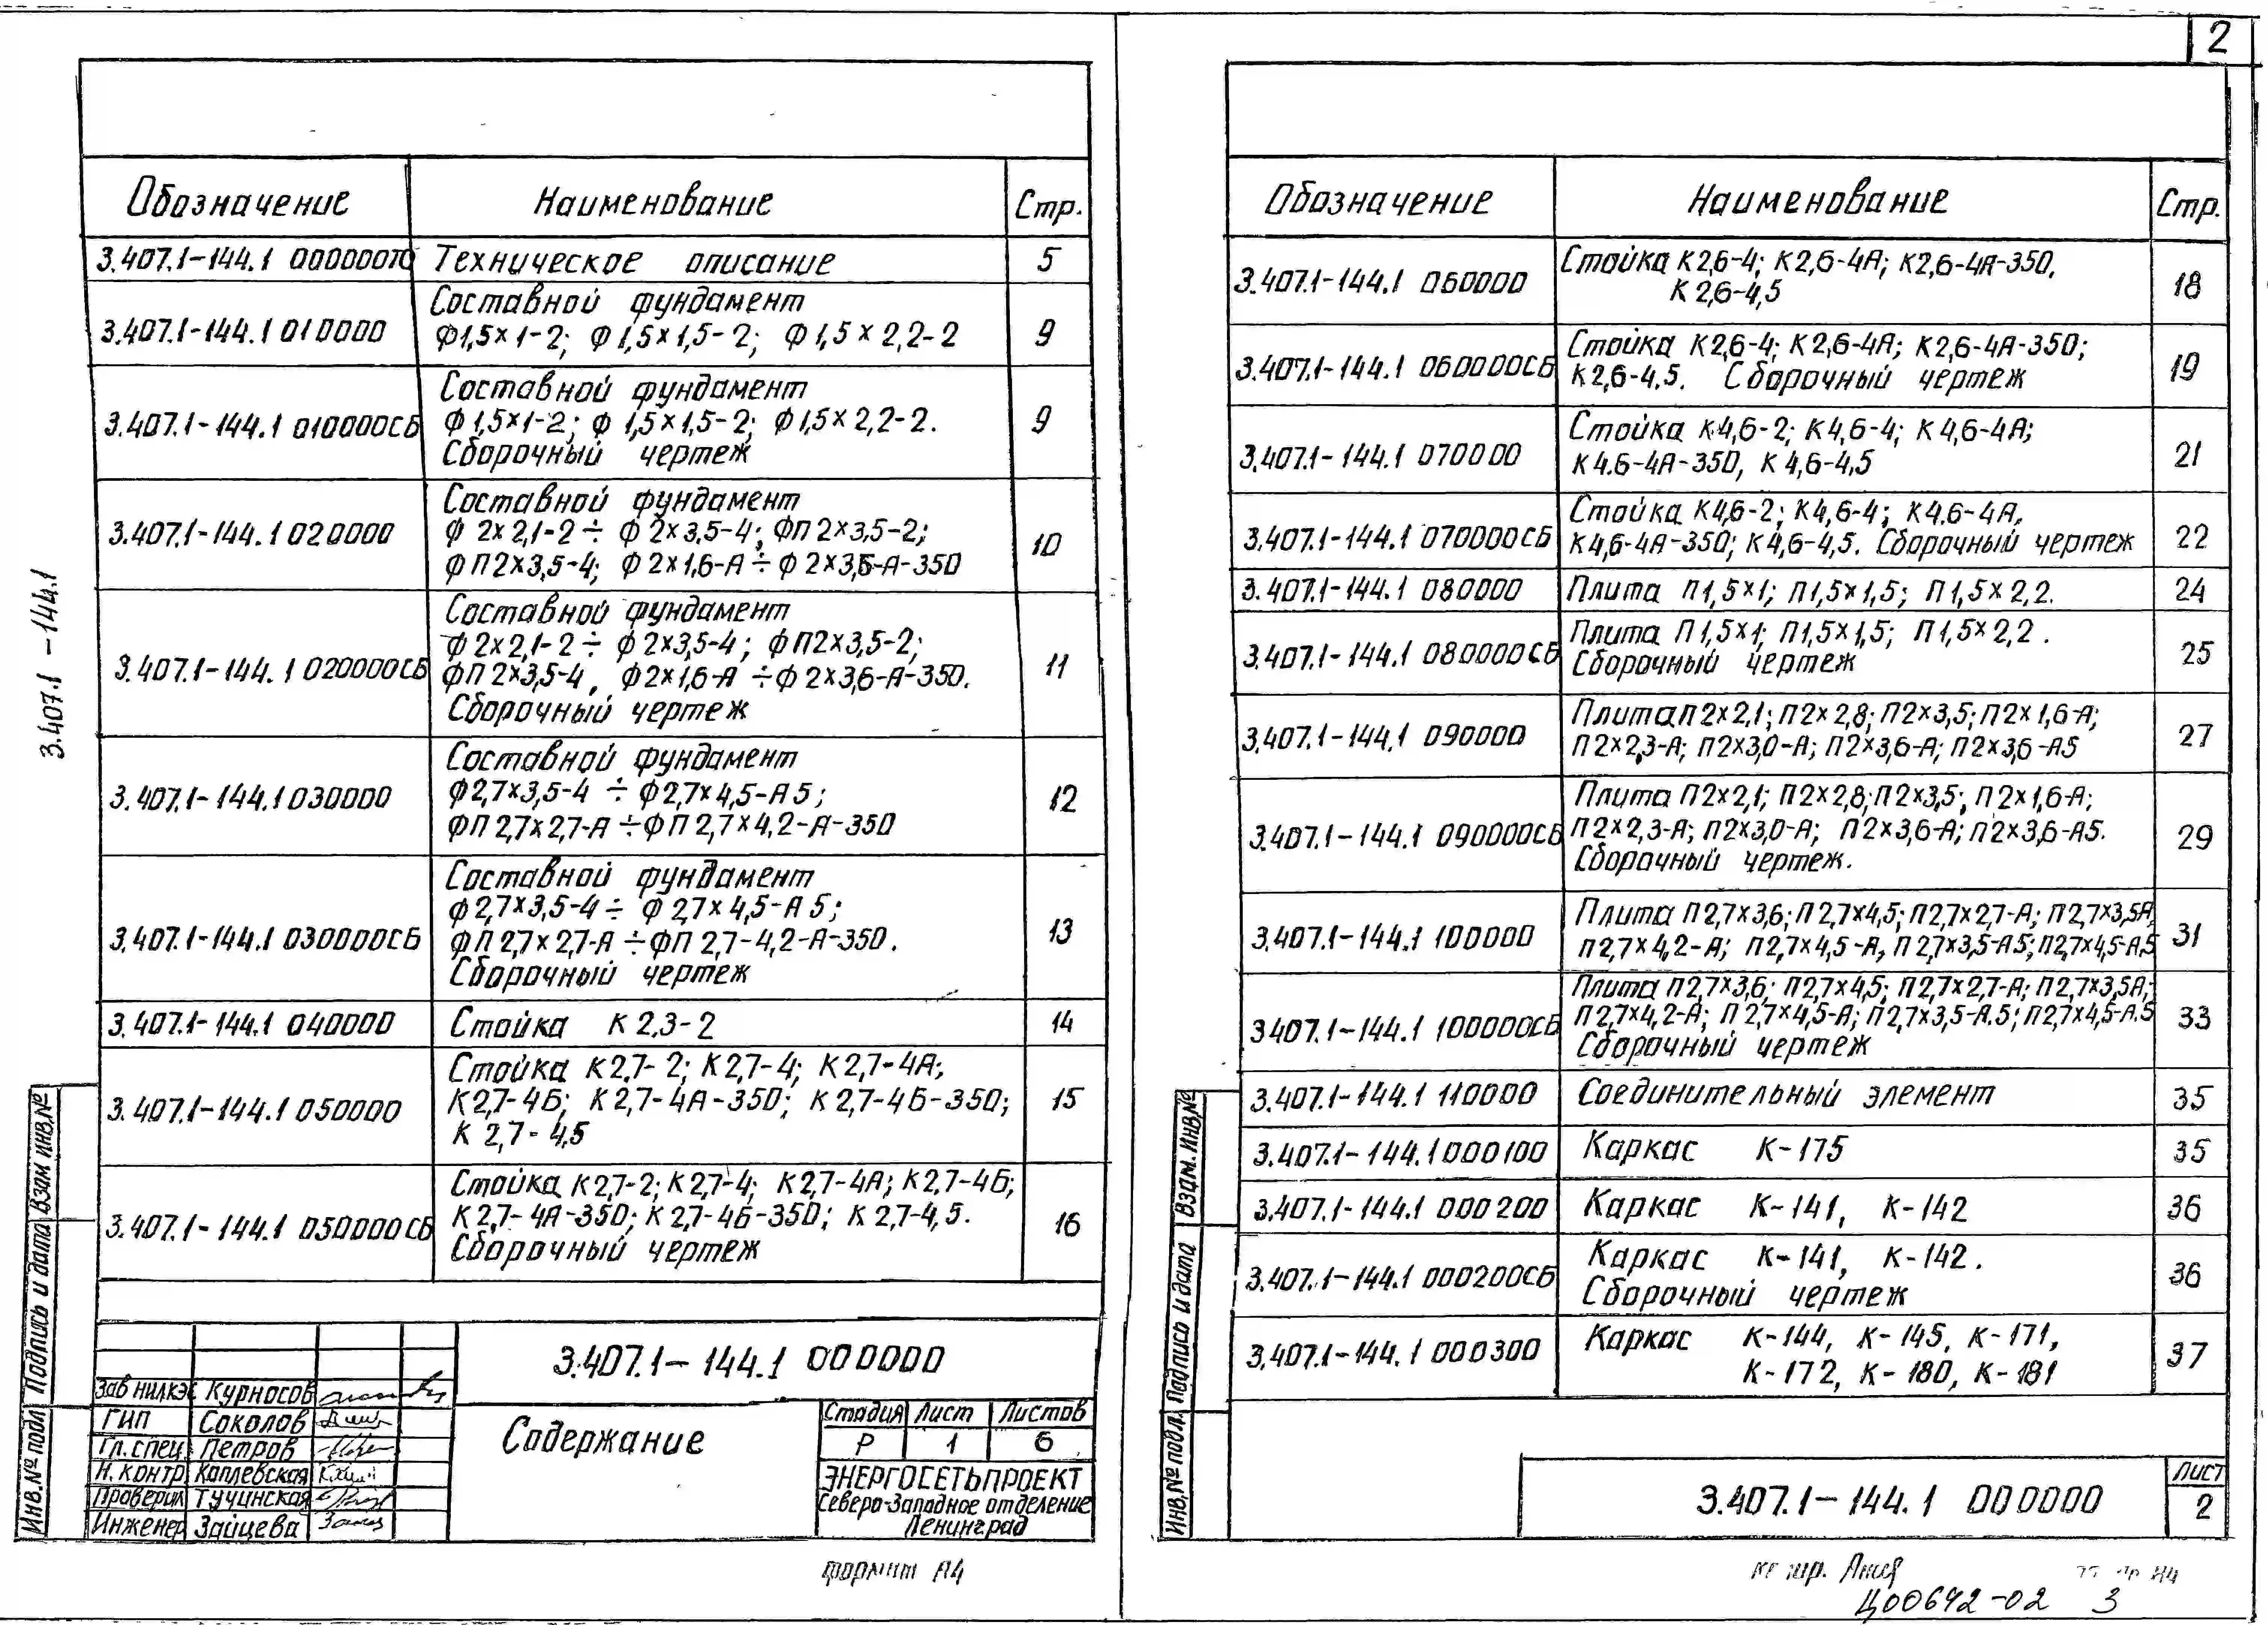 2
3.407.1-144.1
Обозначение Наименование Стр.
3.407.1-144.1 000000ТО Техническое описание 5
3.407.1-144.1 010000 Составной фундамент
Ф1,5×1-2; Ф1,5×1,5-2; Ф1,5×2,2-2 9
3.407.1-144.1 010000СБ Составной фундамент
Ф1,5×1-2; Ф1,5×1,5-2; Ф1,5×2,2-2. 9
Сборочный чертеж
3.407.1-144.1 020000 Составной фундамент
Ф2×2,1-2 ÷ Ф2×3,5-4; ФП2×3,5-2; 10
ФП2×3,5-4; Ф2×1,6-А ÷ Ф2×3,6-А-350
3.407.1-144.1 020000СБ Составной фундамент
Ф2×2,1-2 ÷ Ф2×3,5-4; ФП2×3,5-2; 11
ФП2×3,5-4, Ф2×1,6-А ÷ Ф2×3,6-А-350.
Сборочный чертеж
3.407.1-144.1 030000 Составной фундамент
Ф2,7×3,5-4 ÷ Ф2,7×4,5-А5; 12
ФП2,7×2,7-А ÷ ФП2,7×4,2-А-350
3.407.1-144.1 030000СБ Составной фундамент
Ф2,7×3,5-4 ÷ Ф2,7×4,5-А5; 13
ФП2,7×2,7-А ÷ ФП2,7-4,2-А-350.
Сборочный чертеж
3.407.1-144.1 040000 Стойка К2.3-2 14
3.407.1-144.1 050000 Стойка К2.7-2; К2,7-4; К2,7-4А;
К2,7-4Б; К2,7-4А-350; К2,7-4Б-350; 15
К2,7-4,5
3.407.1-144.1 050000СБ Стойка К2,7-2; К2,7-4; К2,7-4А; К2,7-4Б;
К2,7-4А-350; К2,7-4Б-350; К2,7-4,5. 16
Сборочный чертеж
3.407.1-144.1 000000
Зав НИЛКЭС Курносов
ГИП Соколов
Гл. спец. Петров
Н. контр Каплевская
Проверил Тучинская
Инженер Зайцева
Содержание
Стадия Лист Листов
Р 1 6
ЭНЕРГОСЕТЬПРОЕКТ
Северо-Западное отделение
Ленинград
Инв.№ подл Подпись и дата Взам инв.№
формат А4
Обозначение Наименование Стр.
3.407.1-144.1 060000 Стойка К2,6-4; К2,6-4А; К2,6-4А-350,
К2,6-4,5 18
3.407.1-144.1 060000СБ Стойка К2,6-4; К2,6-4А; К2,6-4А-350;
К2,6-4,5. Сборочный чертеж 19
3.407.1-144.1 070000 Стойка К4,6-2; К4,6-4; К4,6-4А;
К4.6-4А-350, К4,6-4,5 21
3.407.1-144.1 070000СБ Стойка К4,6-2; К4,6-4; К4.6-4А,
К4,6-4А-350; К4,6-4,5. Сборочный чертеж 22
3.407.1-144.1 080000 Плита П1,5×1; П1,5×1,5; П1,5×2,2. 24
3.407.1-144.1 080000СБ Плита П1,5×1; П1,5×1,5; П1,5×2,2.
Сборочный чертеж 25
3.407.1-144.1 090000 Плита П2×2,1; П2×2,8; П2×3,5; П2×1,6-А;
П2×2,3-А; П2×3,0-А; П2×3,6-А; П2×3,6-А5 27
3.407.1-144.1 090000СБ Плита П2×2,1; П2×2,8; П2×3,5; П2×1,6-А;
П2×2,3-А; П2×3,0-А; П2×3,6-А; П2×3,6-А5. 29
Сборочный чертеж.
3.407.1-144.1 100000 Плита П2,7×3,6; П2,7×4,5; П2,7×2,7-А; П2,7×3,5А,
П2,7×4,2-А; П2,7×4,5-А, П2,7×3,5-А5; П2,7×4,5-А5 31
3.407.1-144.1 100000СБ Плита П2,7×3,6; П2,7×4,5; П2,7×2,7-А; П2,7×3,5А;
П2,7×4,2-А; П2,7×4,5-А; П2,7×3,5-А.5; П2,7×4,5-А.5 33
Сборочный чертеж
3.407.1-144.1 110000 Соединительный элемент 35
3.407.1-144.1 000100 Каркас К-175 35
3.407.1-144.1 000200 Каркас К-141, К-142 36
3.407.1-144.1 000200СБ Каркас К-141, К-142. 36
Сборочный чертеж
3.407.1-144.1 000300 Каркас К-144, К-145, К-171, 37
К-172, К-180, К-181
3.407.1-144.1 000000
Лист
2
Инв.№ подл. Подпись и дата Взам. инв.№
Ц00642-02 3